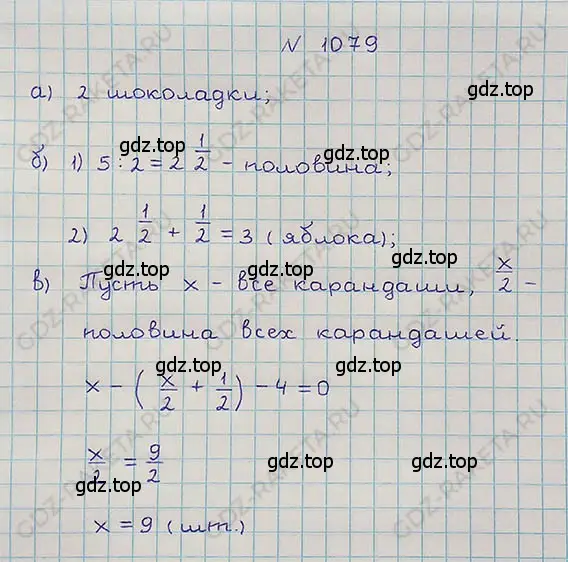 № 1079
а) 2 шоколадки;
б) 1) 5 : 2 = 2 1/2 - половина;
2) 2 1/2 + 1/2 = 3 (яблока);
в) Пусть x - все карандаши, x/2 -
половина всех карандашей.
x - (x/2 + 1/2) - 4 = 0
x/2 = 9/2
x = 9 (шт.)
gdz.top gdz.top
gdz.top gdz.top gdz.top
gdz.top gdz.top gdz.top
gdz.top gdz.top gdz.top
GDZ-RAKETA.RU